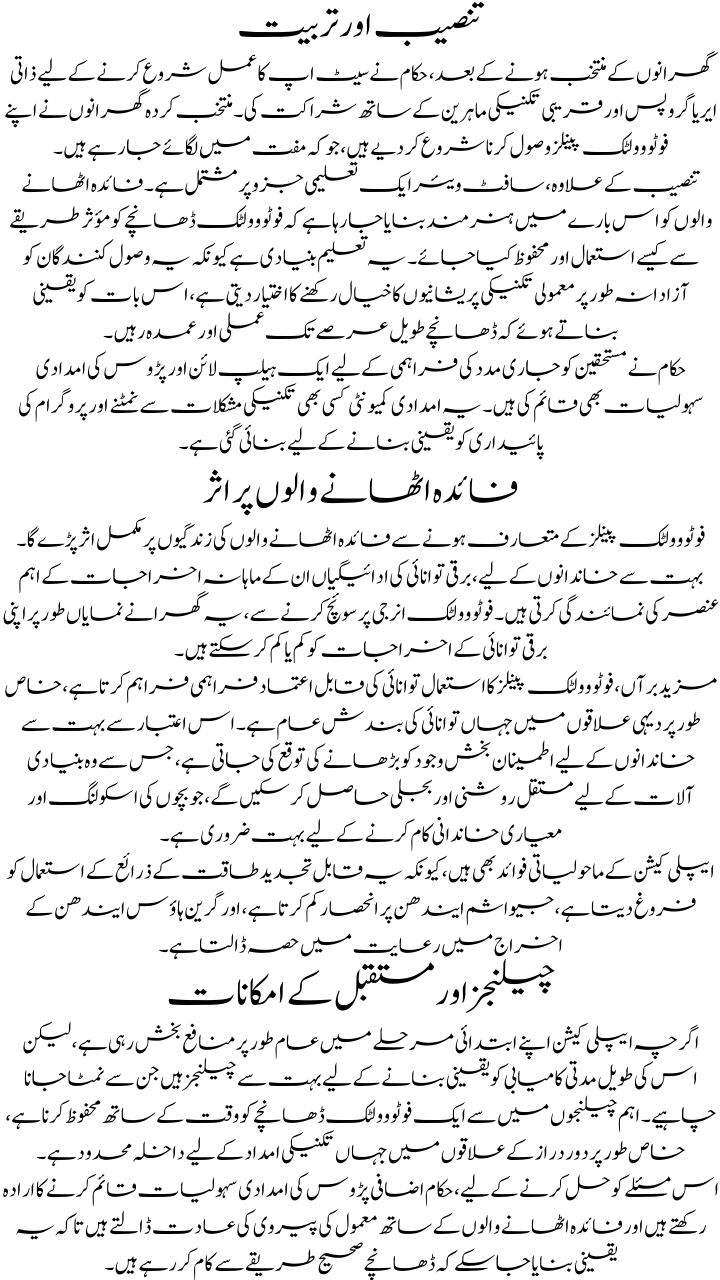 تنصیب اور تربیت
گھرانوں کے منتخب ہونے کے بعد، حکام نے سیٹ اپ کا عمل شروع کرنے کے لیے ذاتی
ایریا گروپس اور قریبی تکنیکی ماہرین کے ساتھ شراکت کی۔ منتخب کردہ گھرانوں نے اپنے
فوٹو وولٹک پینلز وصول کرنا شروع کر دیے ہیں، جو کہ مفت میں لگائے جا رہے ہیں۔
تنصیب کے علاوہ، سافٹ ویئر ایک تعلیمی جزو پر مشتمل ہے۔ فائدہ اٹھانے
والوں کو اس بارے میں ہنر مند بنایا جا رہا ہے کہ فوٹو وولٹک ڈھانچے کو مؤثر طریقے
سے کیسے استعمال اور محفوظ کیا جائے۔ یہ تعلیم بنیادی ہے کیونکہ یہ وصول کنندگان کو
آزادانہ طور پر معمولی تکنیکی پریشانیوں کا خیال رکھنے کا اختیار دیتی ہے، اس بات کو یقینی
بناتے ہوئے کہ ڈھانچے طویل عرصے تک عملی اور عمدہ رہیں۔
حکام نے مستحقین کو جاری مدد کی فراہمی کے لیے ایک ہیلپ لائن اور پڑوس کی امدادی
سہولیات بھی قائم کی ہیں۔ یہ امدادی کمیونٹی کسی بھی تکنیکی مشکلات سے نمٹنے اور پروگرام کی
پائیداری کو یقینی بنانے کے لیے بنائی گئی ہے۔
فائدہ اٹھانے والوں پر اثر
فوٹو وولٹک پینلز کے متعارف ہونے سے فائدہ اٹھانے والوں کی زندگیوں پر مکمل اثر پڑے گا۔
بہت سے خاندانوں کے لیے، برقی توانائی کی ادائیگیاں ان کے ماہانہ اخراجات کے اہم
عنصر کی نمائندگی کرتی ہیں۔ فوٹو وولٹک انرجی پر سوئچ کرنے سے، یہ گھرانے نمایاں طور پر اپنی
برقی توانائی کے اخراجات کو کم یا کم کر سکتے ہیں۔
مزید برآں، فوٹو وولٹک پینلز کا استعمال توانائی کی قابل اعتماد فراہمی فراہم کرتا ہے، خاص
طور پر دیہی علاقوں میں جہاں توانائی کی بندش عام ہے۔ اس اعتبار سے بہت سے
خاندانوں کے لیے اطمینان بخش وجود کو بڑھانے کی توقع کی جاتی ہے، جس سے وہ بنیادی
آلات کے لیے مستقل روشنی اور بجلی حاصل کر سکیں گے، جو بچوں کی اسکولنگ اور
معیاری خاندانی کام کرنے کے لیے بہت ضروری ہے۔
ایپلی کیشن کے ماحولیاتی فوائد بھی ہیں، کیونکہ یہ قابل تجدید طاقت کے ذرائع کے استعمال کو
فروغ دیتا ہے، جیواشم ایندھن پر انحصار کم کرتا ہے، اور گرین ہاؤس ایندھن کے
اخراج میں رعایت میں حصہ ڈالتا ہے۔
چیلنجز اور مستقبل کے امکانات
اگرچہ ایپلی کیشن اپنے ابتدائی مرحلے میں عام طور پر منافع بخش رہی ہے، لیکن
اس کی طویل مدتی کامیابی کو یقینی بنانے کے لیے بہت سے چیلنجز ہیں جن سے نمٹا جانا
چاہیے۔ اہم چیلنجوں میں سے ایک فوٹو وولٹک ڈھانچے کو وقت کے ساتھ محفوظ کرنا ہے،
خاص طور پر دور دراز کے علاقوں میں جہاں تکنیکی امداد کے لیے داخلہ محدود ہے۔
اس مسئلے کو حل کرنے کے لیے، حکام اضافی پڑوس کی امدادی سہولیات قائم کرنے کا ارادہ
رکھتے ہیں اور فائدہ اٹھانے والوں کے ساتھ معمول کی پیروی کی عادت ڈالتے ہیں تاکہ یہ
یقینی بنایا جا سکے کہ ڈھانچے صحیح طریقے سے کام کر رہے ہیں۔